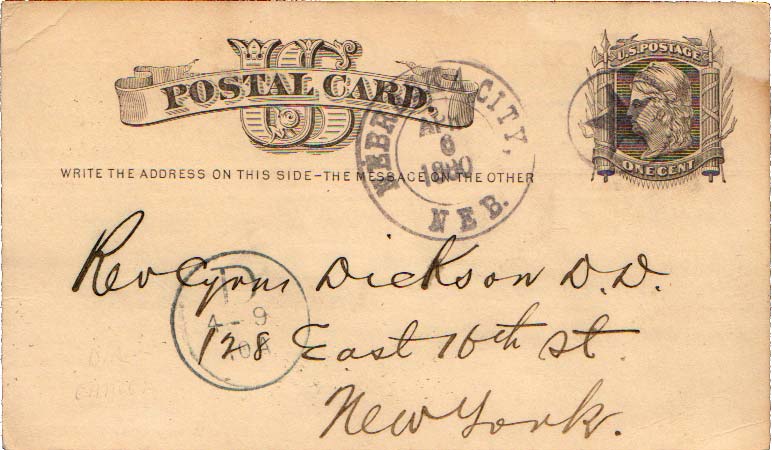 US
POSTAL CARD.
NEBRASKA CITY,
AP
6
1880
NEB.
U.S. POSTAGE
ONE CENT
WRITE THE ADDRESS ON THIS SIDE-THE MESSAGE ON THE OTHER
Rev Cyrus Dickson D.D.
128 East 16th st.
New York.
D
4-9
10A